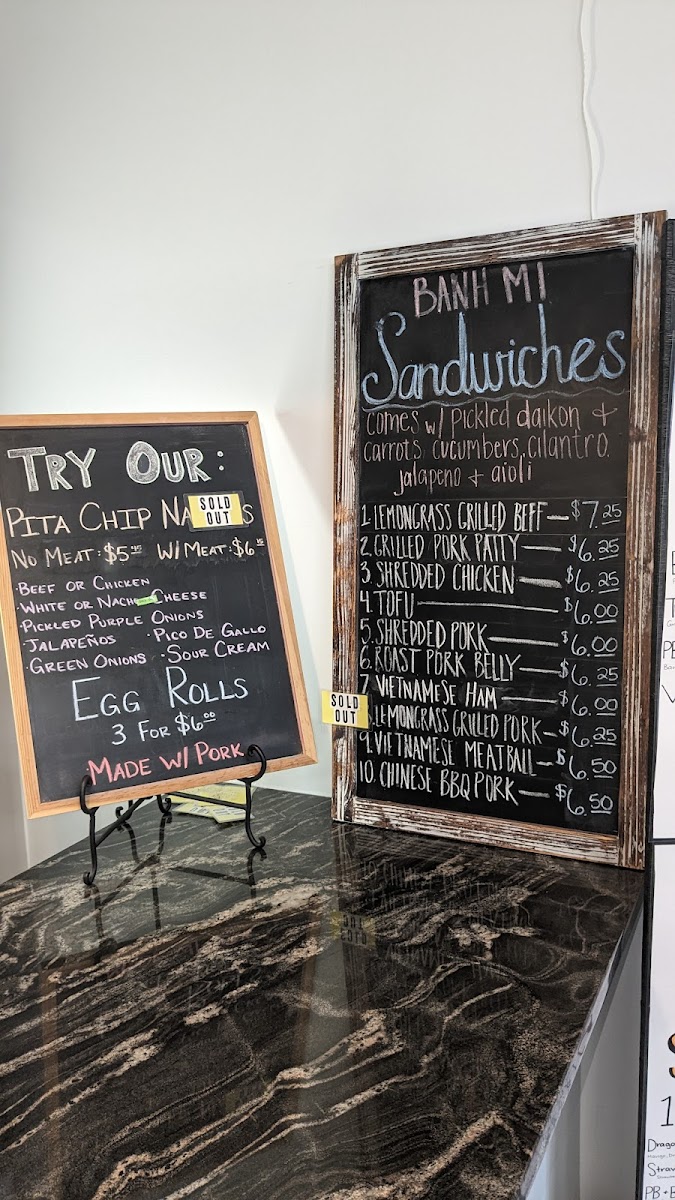 TRY OUR:
PITA CHIP NA S
SOLD
OUT
NO MEAT: $5 W/ MEAT: $6
·BEEF OR CHICKEN
·WHITE OR NACHO CHEESE
·PICKLED PURPLE ONIONS
·JALAPEÑOS ·PICO DE GALLO
·GREEN ONIONS ·SOUR CREAM
EGG ROLLS
3 FOR $6.00
MADE W/ PORK
BANH MI
Sandwiches
comes w/ pickled daikon +
carrots, cucumbers, cilantro,
jalapeno + aioli
1. LEMONGRASS GRILLED BEEF — $7.25
2. GRILLED PORK PATTY — $6.25
3. SHREDDED CHICKEN — $6.25
4. TOFU — $6.00
5. SHREDDED PORK — $6.00
6. ROAST PORK BELLY — $6.25
7. VIETNAMESE HAM — $6.00
SOLD
OUT
LEMONGRASS GRILLED PORK — $6.25
9. VIETNAMESE MEATBALL — $6.50
10. CHINESE BBQ PORK — $6.50